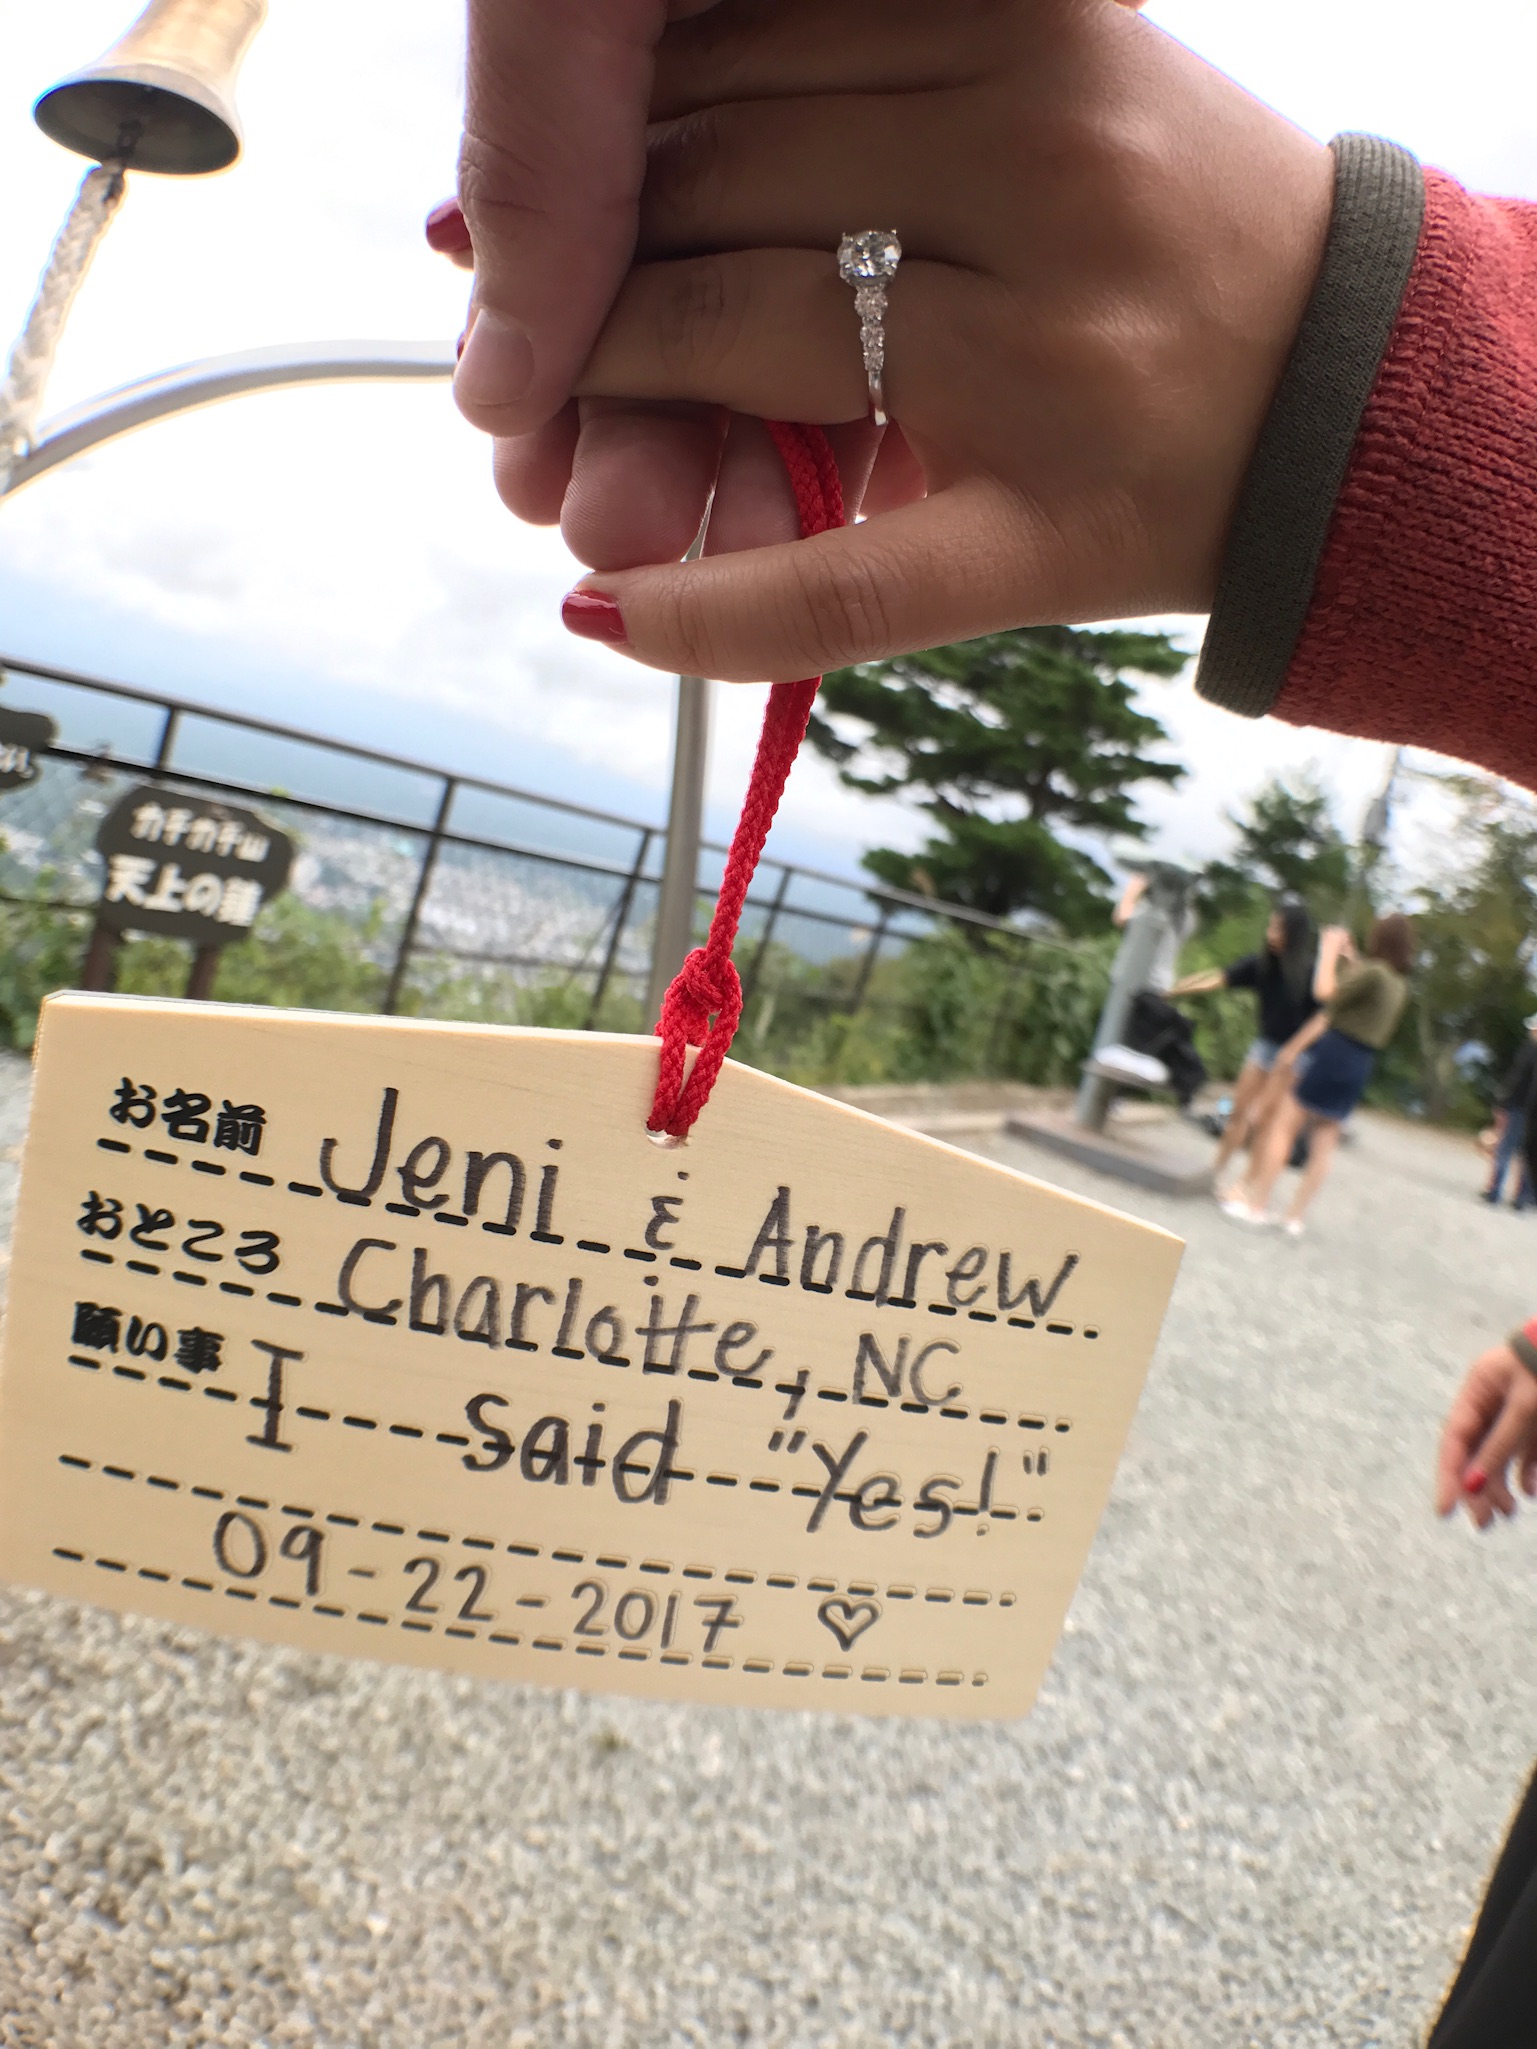 カチカチ山
天上の鐘
お名前 Jeni & Andrew
おところ Charlotte, NC
願い事 I said "Yes!"
09-22-2017 ♡